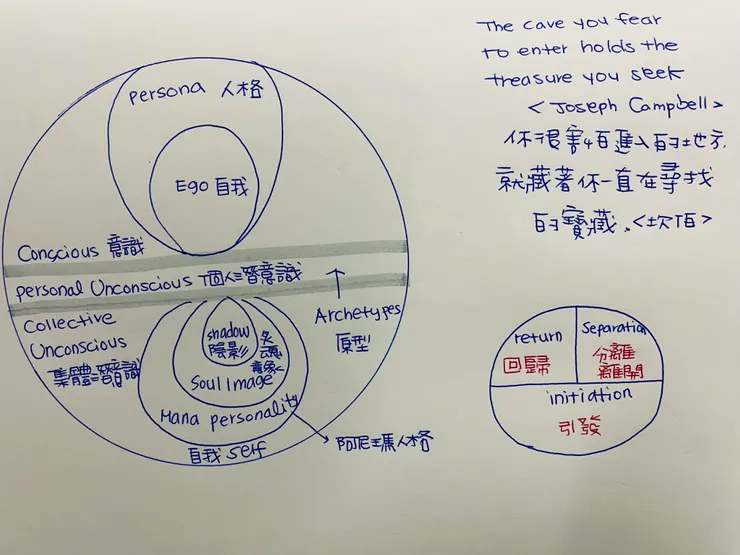 The cave you fear
to enter holds the
treasure you seek
< Joseph Campbell >
你很害怕進入的地方,
就藏著你一直在尋找
的寶藏.<坎伯>
persona 人格
Ego 自我
Conscious 意識
personal Unconscious 個人潛意識
Collective
Unconscious
集體潛意識
Archetypes
原型
shadow
陰影
靈魂
意象
Soul Image
Mana personality
阿尼瑪人格
自我 self
return
回歸
Separation
分離
離開
initiation
引發